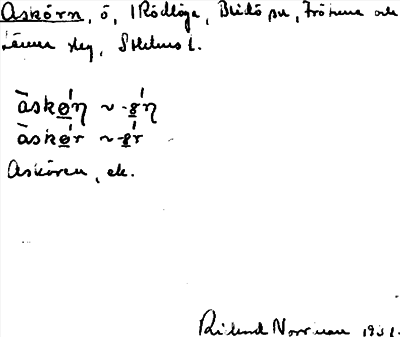 Askörn, ö, i Rödlöga, Blidö sn, Frötuna och
Länna slg, Sthlms l.
àskǿ̠η ~ -8̠́η
àskǿ̠r ~ -8̠́r
Asköron, ek.
Rikard Norrman